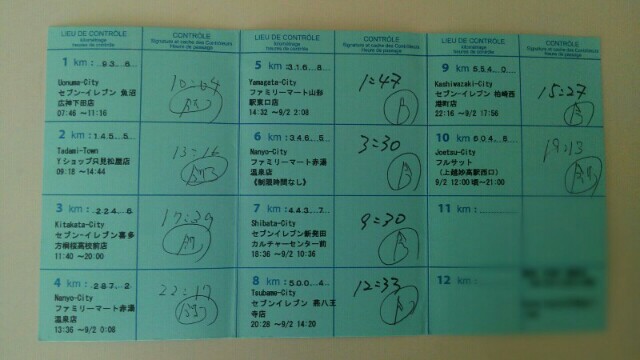 LIEU DE CONTRÔLE
kilométrage
heures de contrôle
CONTRÔLE
Signature et cachet des Contrôleurs
heure de passage
1 km: 93.6
Uonuma-City
セブン-イレブン 魚沼
広神下田店
07:46 ～11:16
10:04
2 km: 145.5
Tadami-Town
Yショップ只見松屋店
09:18 ～14:44
13:16
3 km: 224.6
Kitakata-City
セブン-イレブン喜多
方桐桜高校前店
11:40 ～20:00
17:39
4 km: 287.2
Nanyo-City
ファミリーマート赤湯
温泉店
13:36 ～9/2 0:08
22:17
LIEU DE CONTRÔLE
kilométrage
heures de contrôle
CONTRÔLE
Signature et cachet des Contrôleurs
heure de passage
5 km: 316.8
Yamagata-City
ファミリーマート山形
駅東口店
14:32 ～9/2 2:08
1:47
6 km: 346.5
Nanyo-City
ファミリーマート赤湯
温泉店
《制限時間なし》
3:30
7 km: 443.7
Shibata-City
セブンイレブン新発田
カルチャーセンター前
18:36 ～9/2 10:36
9:30
8 km: 500.4
Tsubame-City
セブンイレブン 燕八王
寺店
20:28 ～9/2 14:20
12:33
LIEU DE CONTRÔLE
kilométrage
heures de contrôle
CONTRÔLE
Signature et cachet des Contrôleurs
heure de passage
9 km: 554.0
Kashiwazaki-City
セブンイレブン 柏崎西
港町店
22:16 ～9/2 17:56
15:27
10 km: 604.8
Joetsu-City
フルサット
(上越妙高駅西口)
9/2 12:00 頃～21:00
19:13
11 km:
12